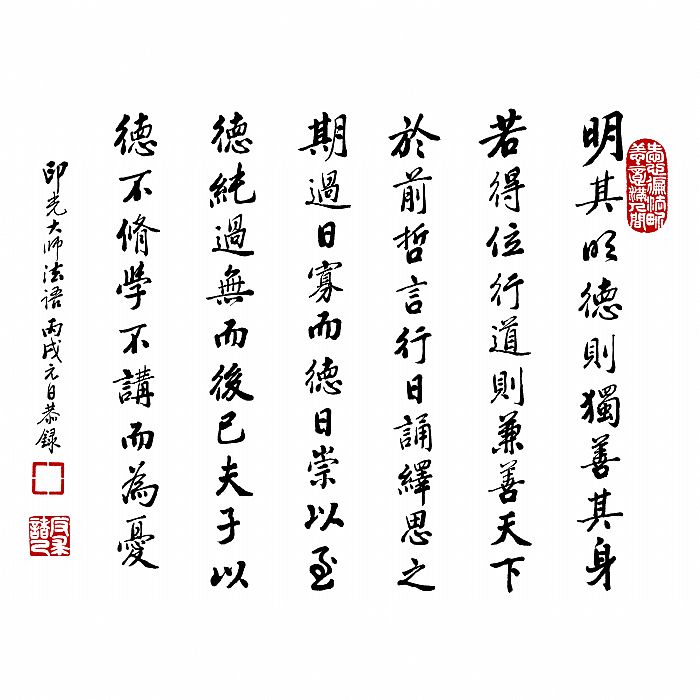 明其明德則獨善其身
若得位行道則兼善天下
於前哲言行日誦繹思之
期過日寡而德日崇以至
德純過無而後已夫子以
德不脩學不講而為憂
印光大师法语 丙戌元日恭録
反求諸己